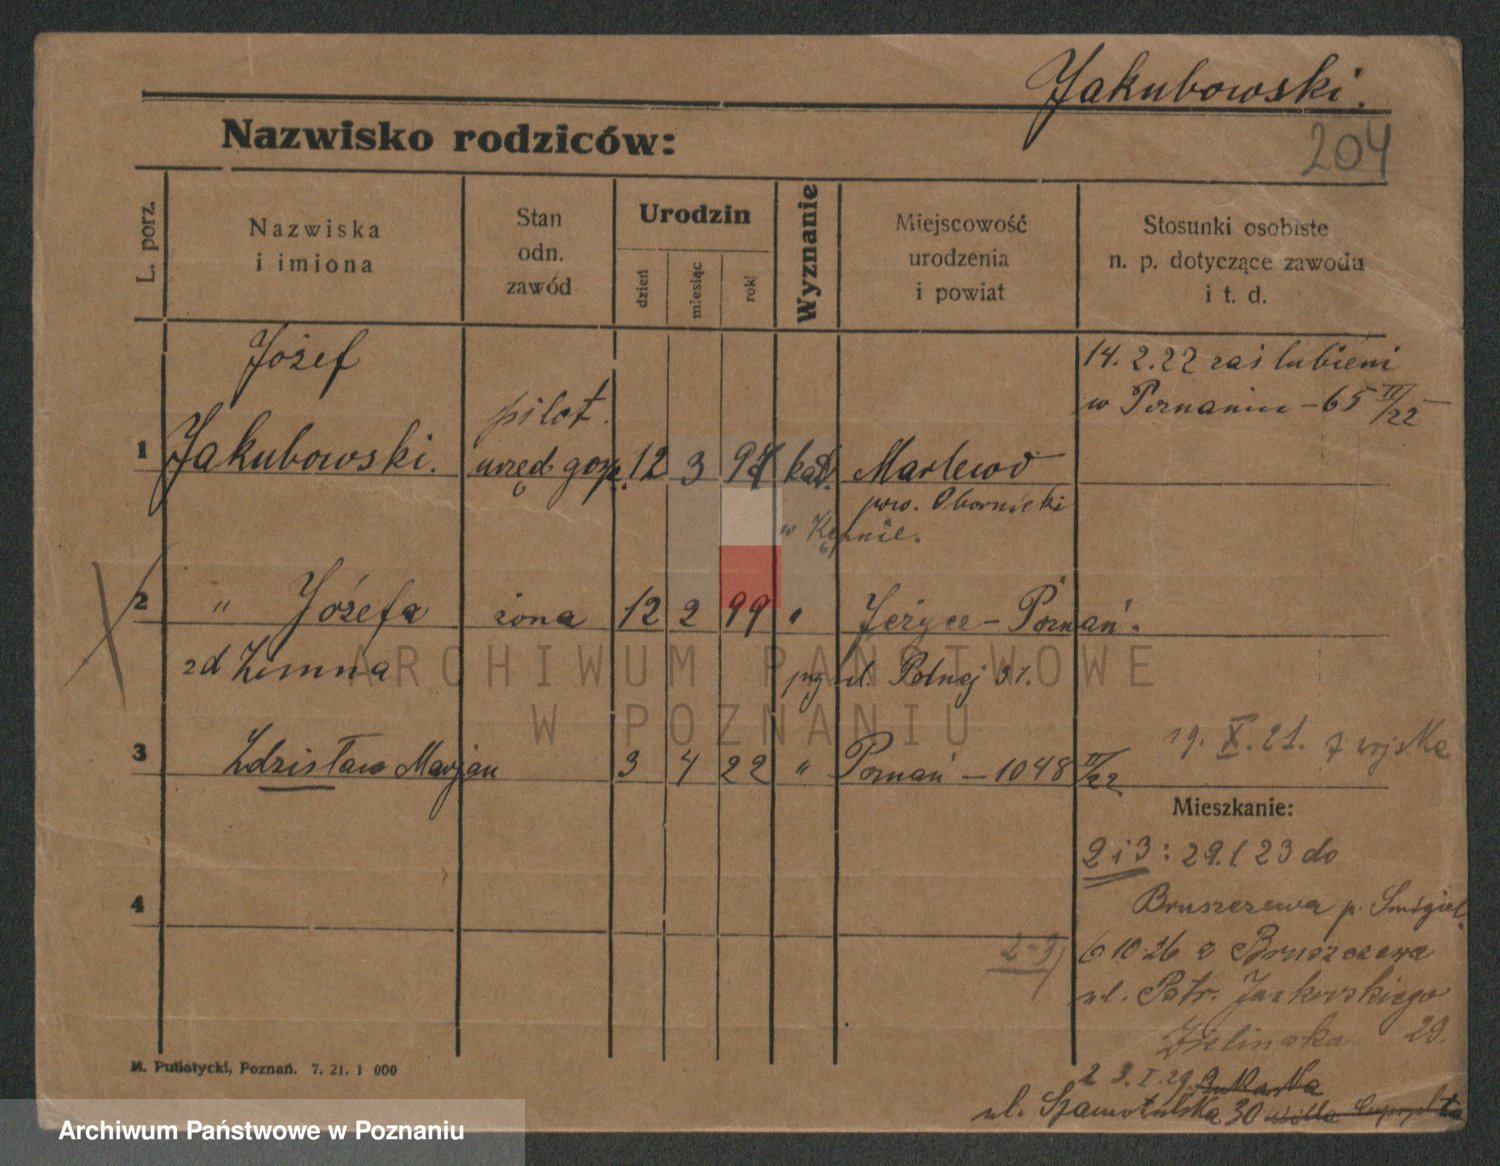 Jakubowski.
204
Nazwisko rodziców:
L. porz.
Nazwiska
i imiona
Stan
odn.
zawód
Urodzin
dzień
miesiąc
rok
Wyznanie
Miejscowość
urodzenia
i powiat
Stosunki osobiste
n. p. dotyczące zawodu
i t. d.
Józef
14. 2. 22 zaślubieni
w Poznaniu - 65 II/22
pilot.
1 Jakubowski. urzęd gosp. 12 3 97 kat. Marlewo
pow. Obornicki
w Kępnie.
2 " Józefa żona 12 2 99 " Jeżyce - Poznań.
zd Zimna
ul. Polnej 31.
19. X. 21. z wojska
3 Zdzisław Marjan 3 4 22 " Poznań - 1048 II/22
Mieszkanie:
2 i 3: 29.1 23 do
Bruszczewa p. Śmigiel.
4
2-3) 6 10.26 z Bruszczewa
ul. Patr. Jackowskiego
Zielinska 29.
2 3. I. 29.
ul. Szamotulska 30 willa
M. Putiatycki, Poznań. 7. 21. 1 000
ARCHIWUM PAŃSTWOWE
W POZNANIU
Archiwum Państwowe w Poznaniu